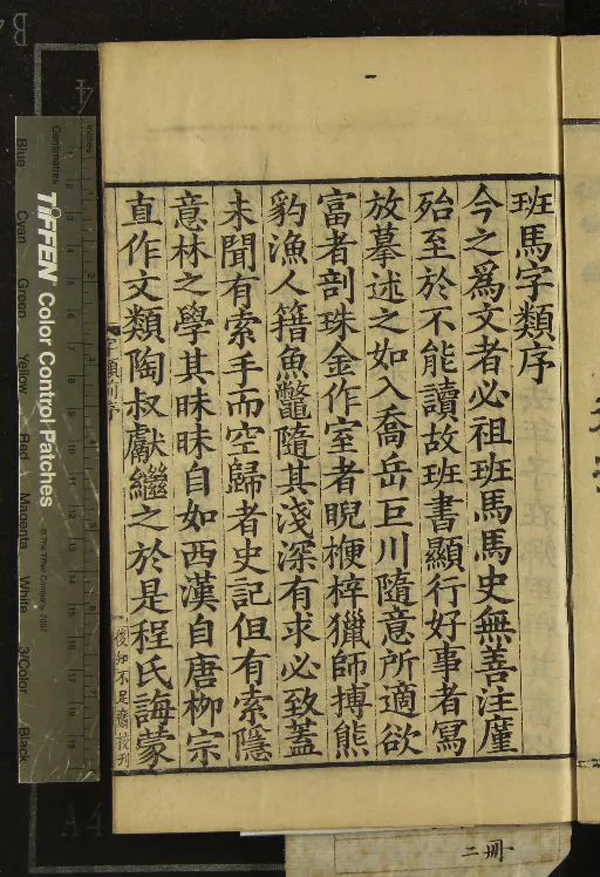 班馬字類序
今之爲文者必祖班馬馬史無善注廑
殆至於不能讀故班書顯行好事者寫
放摹述之如入喬岳巨川隨意所適欲
富者剖珠金作室者睨楩梓獵師搏熊
豹漁人籍魚鼈隨其淺深有求必致蓋
未聞有索手而空歸者史記但有索隱
意林之學其昧昧自如西漢自唐柳宗
直作文類陶叔獻繼之於是程氏誨蒙
後知不足齋校刊
TIFFEN Color Control Patches
© The Tiffen Company, 2007
Inches
Centimetres
Blue Cyan Green Yellow Red Magenta White 3/Color Black
A4
二冊